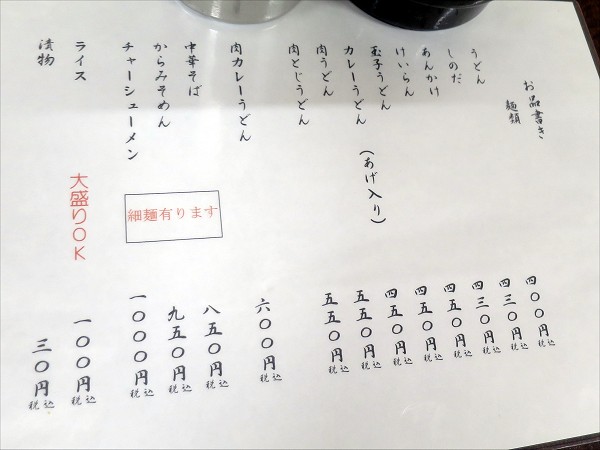 お品書き
麺類
うどん 四〇〇円 税込
しのだ 四三〇円 税込
あんかけ 四三〇円 税込
けいらん 四五〇円 税込
玉子うどん 四五〇円 税込
カレーうどん (あげ入り) 四五〇円 税込
肉うどん 五五〇円 税込
肉とじうどん 五五〇円 税込
肉カレーうどん 六〇〇円 税込
中華そば 八五〇円 税込
からみそめん 九五〇円 税込
チャーシューメン 一〇〇〇円 税込
細麺有ります
ライス 大盛りOK 一〇〇円 税込
漬物 三〇円 税込